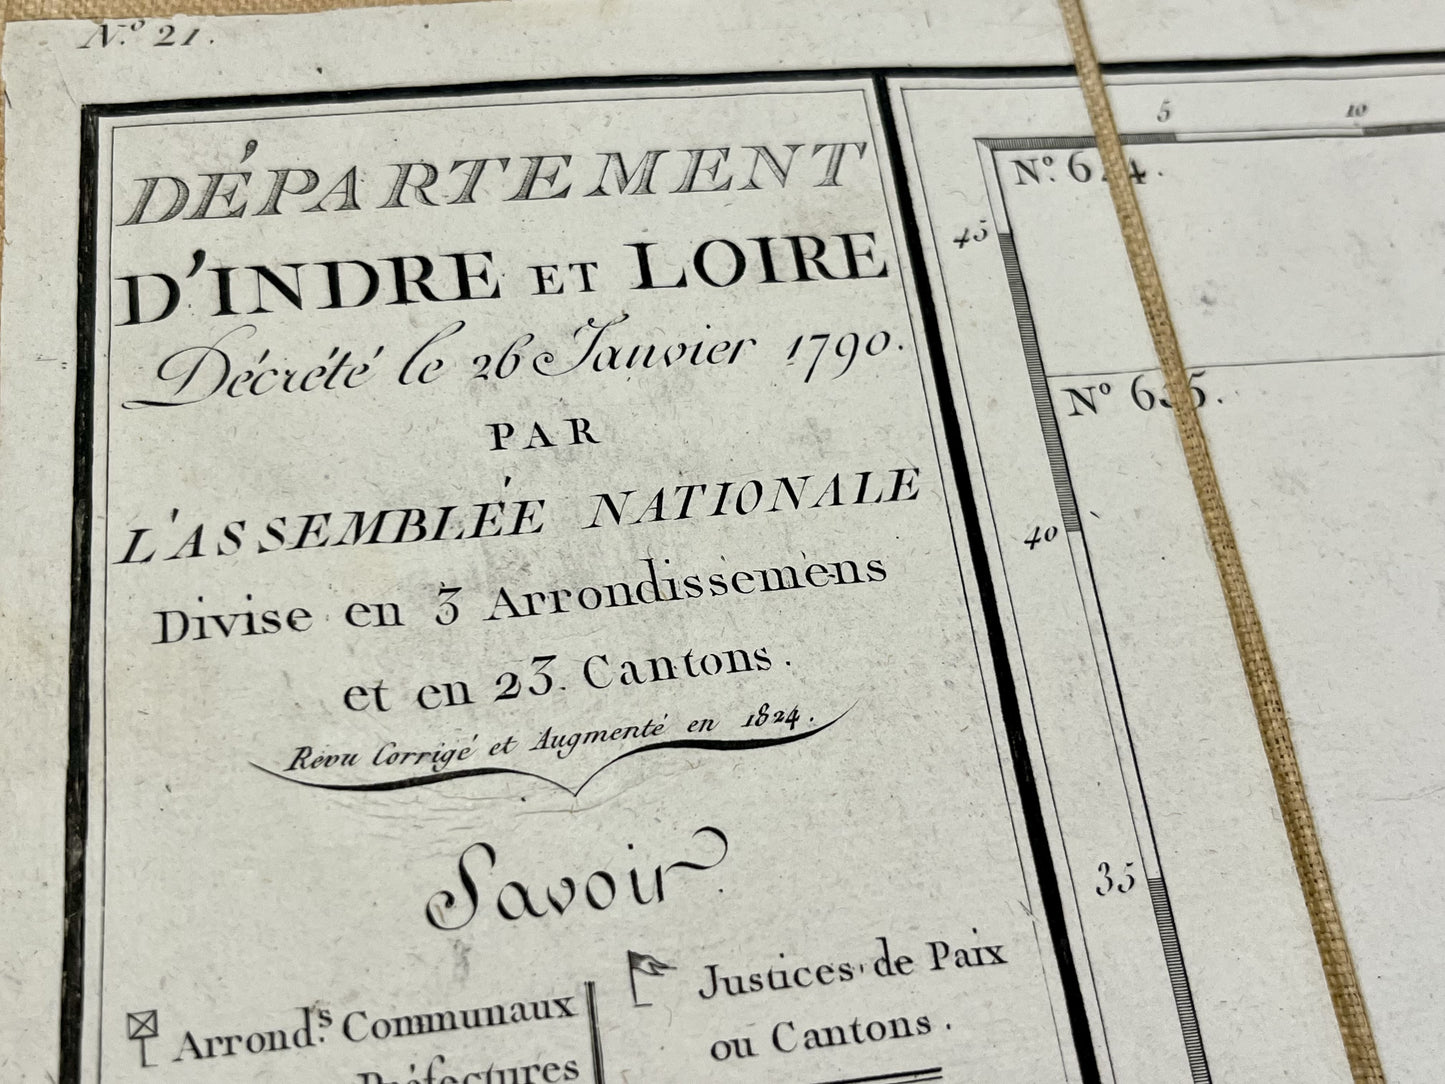 N.º 21.
DÉPARTEMENT
D'INDRE ET LOIRE
Décrété le 26 Janvier 1790.
PAR
L'ASSEMBLÉE NATIONALE
Divise en 3 Arrondissemens
et en 23. Cantons.
Revu Corrigé et Augmenté en 1824.
Savoir
Arrond.s Communaux
Préfectures
Justices de Paix
ou Cantons.
5
10
Nº.
45
Nº
40
35